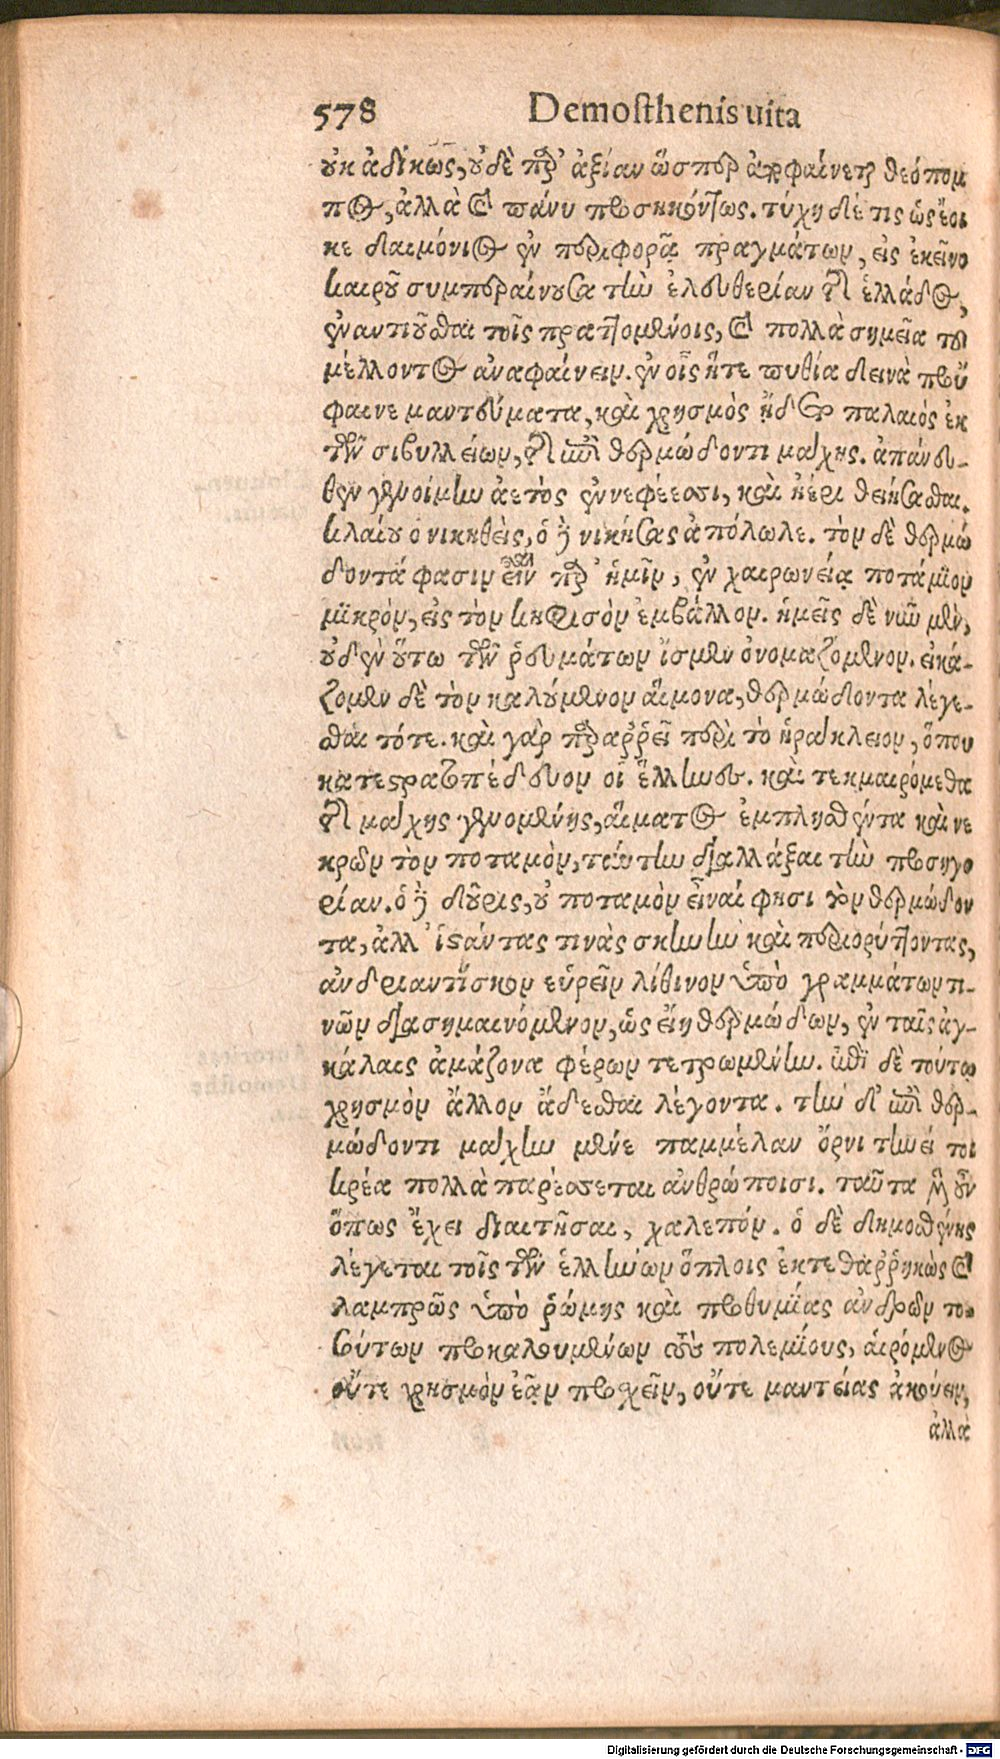 578 Demosthenis uita
οὐκ ἀδίκως, οὐδὲ παρ’ ἀξίαν ὥσπερ ἀποφαίνεται θεόπομ
πος, ἀλλὰ καὶ πάνυ προσηκόντως. τύχη δέ τις ὡς ἔοι
κε δαιμόνιος ἐν περιφορᾷ πραγμάτων, εἰς ἐκεῖνο
καιροῦ συμπεραίνουσα τὴν ἐλευθερίαν τῆς ἑλλάδος,
ἐναντιοῦσθαι τοῖς πραττομένοις, καὶ πολλὰ σημεῖα τοῦ
μέλλοντος ἀναφαίνειν. ἐν οἷς ἥτε πυθία δεινὰ προὔ
φαινε μαντεύματα, καὶ χρησμὸς ᾔδετο παλαιός ἐκ
τῶν σιβυλλείων, τῆς ἐπὶ θερμώδοντι μάχης. ἀπάνευ-
θεν γενοίμην αἰετὸς ἐν νεφέεσσι, καὶ ἠέρι θηήσασθαι.
κλαίει ὁ νικηθεὶς, ὁ δὲ νικήσας ἀπόλωλε. τὸν δὲ θερμώ
δοντά φασιν εἶναι παρ’ ἡμῖν, ἐν χαιρωνείᾳ ποτάμιον
μικρὸν, εἰς τὸν κηφισὸν ἐμβάλλον. ἡμεῖς δὲ νῦν μὲν,
οὐδὲν οὕτω τῶν ῥευμάτων ἴσμεν ὀνομαζόμενον. εἰκά-
ζομεν δὲ τὸν καλούμενον αἵμονα, θερμώδοντα λέγε-
σθαι τότε. καὶ γὰρ παραῤῥεῖ περὶ τὸ ἡράκλειον, ὅπου
κατεστρατοπέδευον οἱ ἕλληνες. καὶ τεκμαιρόμεθα
τῆς μάχης γενομένης, αἵματος ἐμπλησθέντα καὶ νε
κρῶν τὸν ποταμὸν, ταύτην διαλλάξαι τὴν προσηγο
ρίαν. ὁ δὲ δοῦρις, οὐ ποταμὸν εἶναί φησι τὸν θερμώδον
τα, ἀλλ’ ἱστάντας τινὰς σκηνὴν καὶ περιορύττοντας,
ἀνδριαντίσκον εὑρεῖν λίθινον ὑπὸ γραμμάτων τι-
νῶν διασημαινόμενον, ὡς εἴη θερμώδων, ἐν ταῖς ἀγ-
κάλαις ἀμάζονα φέρων τετρωμένην. ἐπὶ δὲ τούτῳ
χρησμὸν ἄλλον ᾄδεσθαι λέγοντα. τὴν δ’ ἐπὶ θερ-
μώδοντι μάχην μένε παμμέλαν ὄρνι τηνεί τοι
κρέα πολλὰ παρέσσεται ἀνθρώποισι. ταῦτα μὲν οὖν
ὅπως ἔχει διαιτῆσαι, χαλεπόν. ὁ δὲ δημοσθένης
λέγεται τοῖς τῶν ἑλλήνων ὅπλοις ἐκτεθαῤῥηκὼς καὶ
λαμπρῶς ὑπὸ ῥώμης καὶ προθυμίας ἀνδρῶν το-
σούτων προκαλουμένων τοὺς πολεμίους, αἰρόμενος
οὔτε χρησμὸν ἐᾶν προσχεῖν, οὔτε μαντείας ἀκούειν,
ἀλλὰ
Digitalisierung gefördert durch die Deutsche Forschungsgemeinschaft - DFG